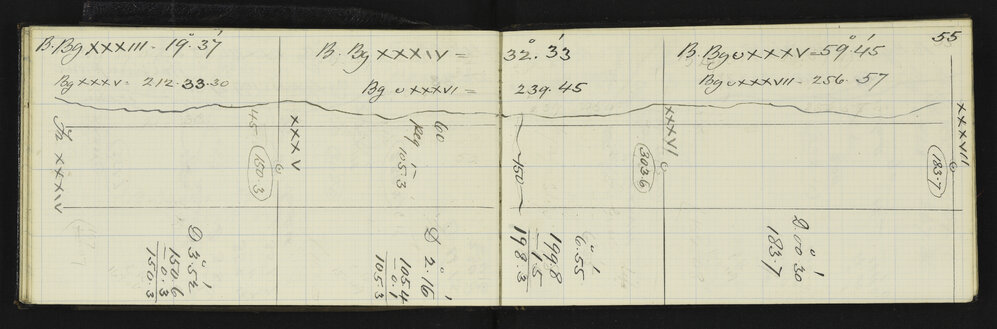 55
B. Bg XXXIII - 19° 37'
Bg XXXV = 212. 33. 30
B. Bg XXXIV = 32° 33'
Bg o XXXVI = 239. 45
B. Bg o XXXV = 59° 45'
Bg o XXXVII - 256. 57
XXXIV
45
150.3
XXXV
60
Peg
105.3
450
303.6
XXXVI
183.7
XXXVII
D 3° 52'
150.6
0.3
150.3
D 2° 16'
105.4
0.1
105.3
6° 55'
199.8
1.5
198.3
D 00° 30'
183.7